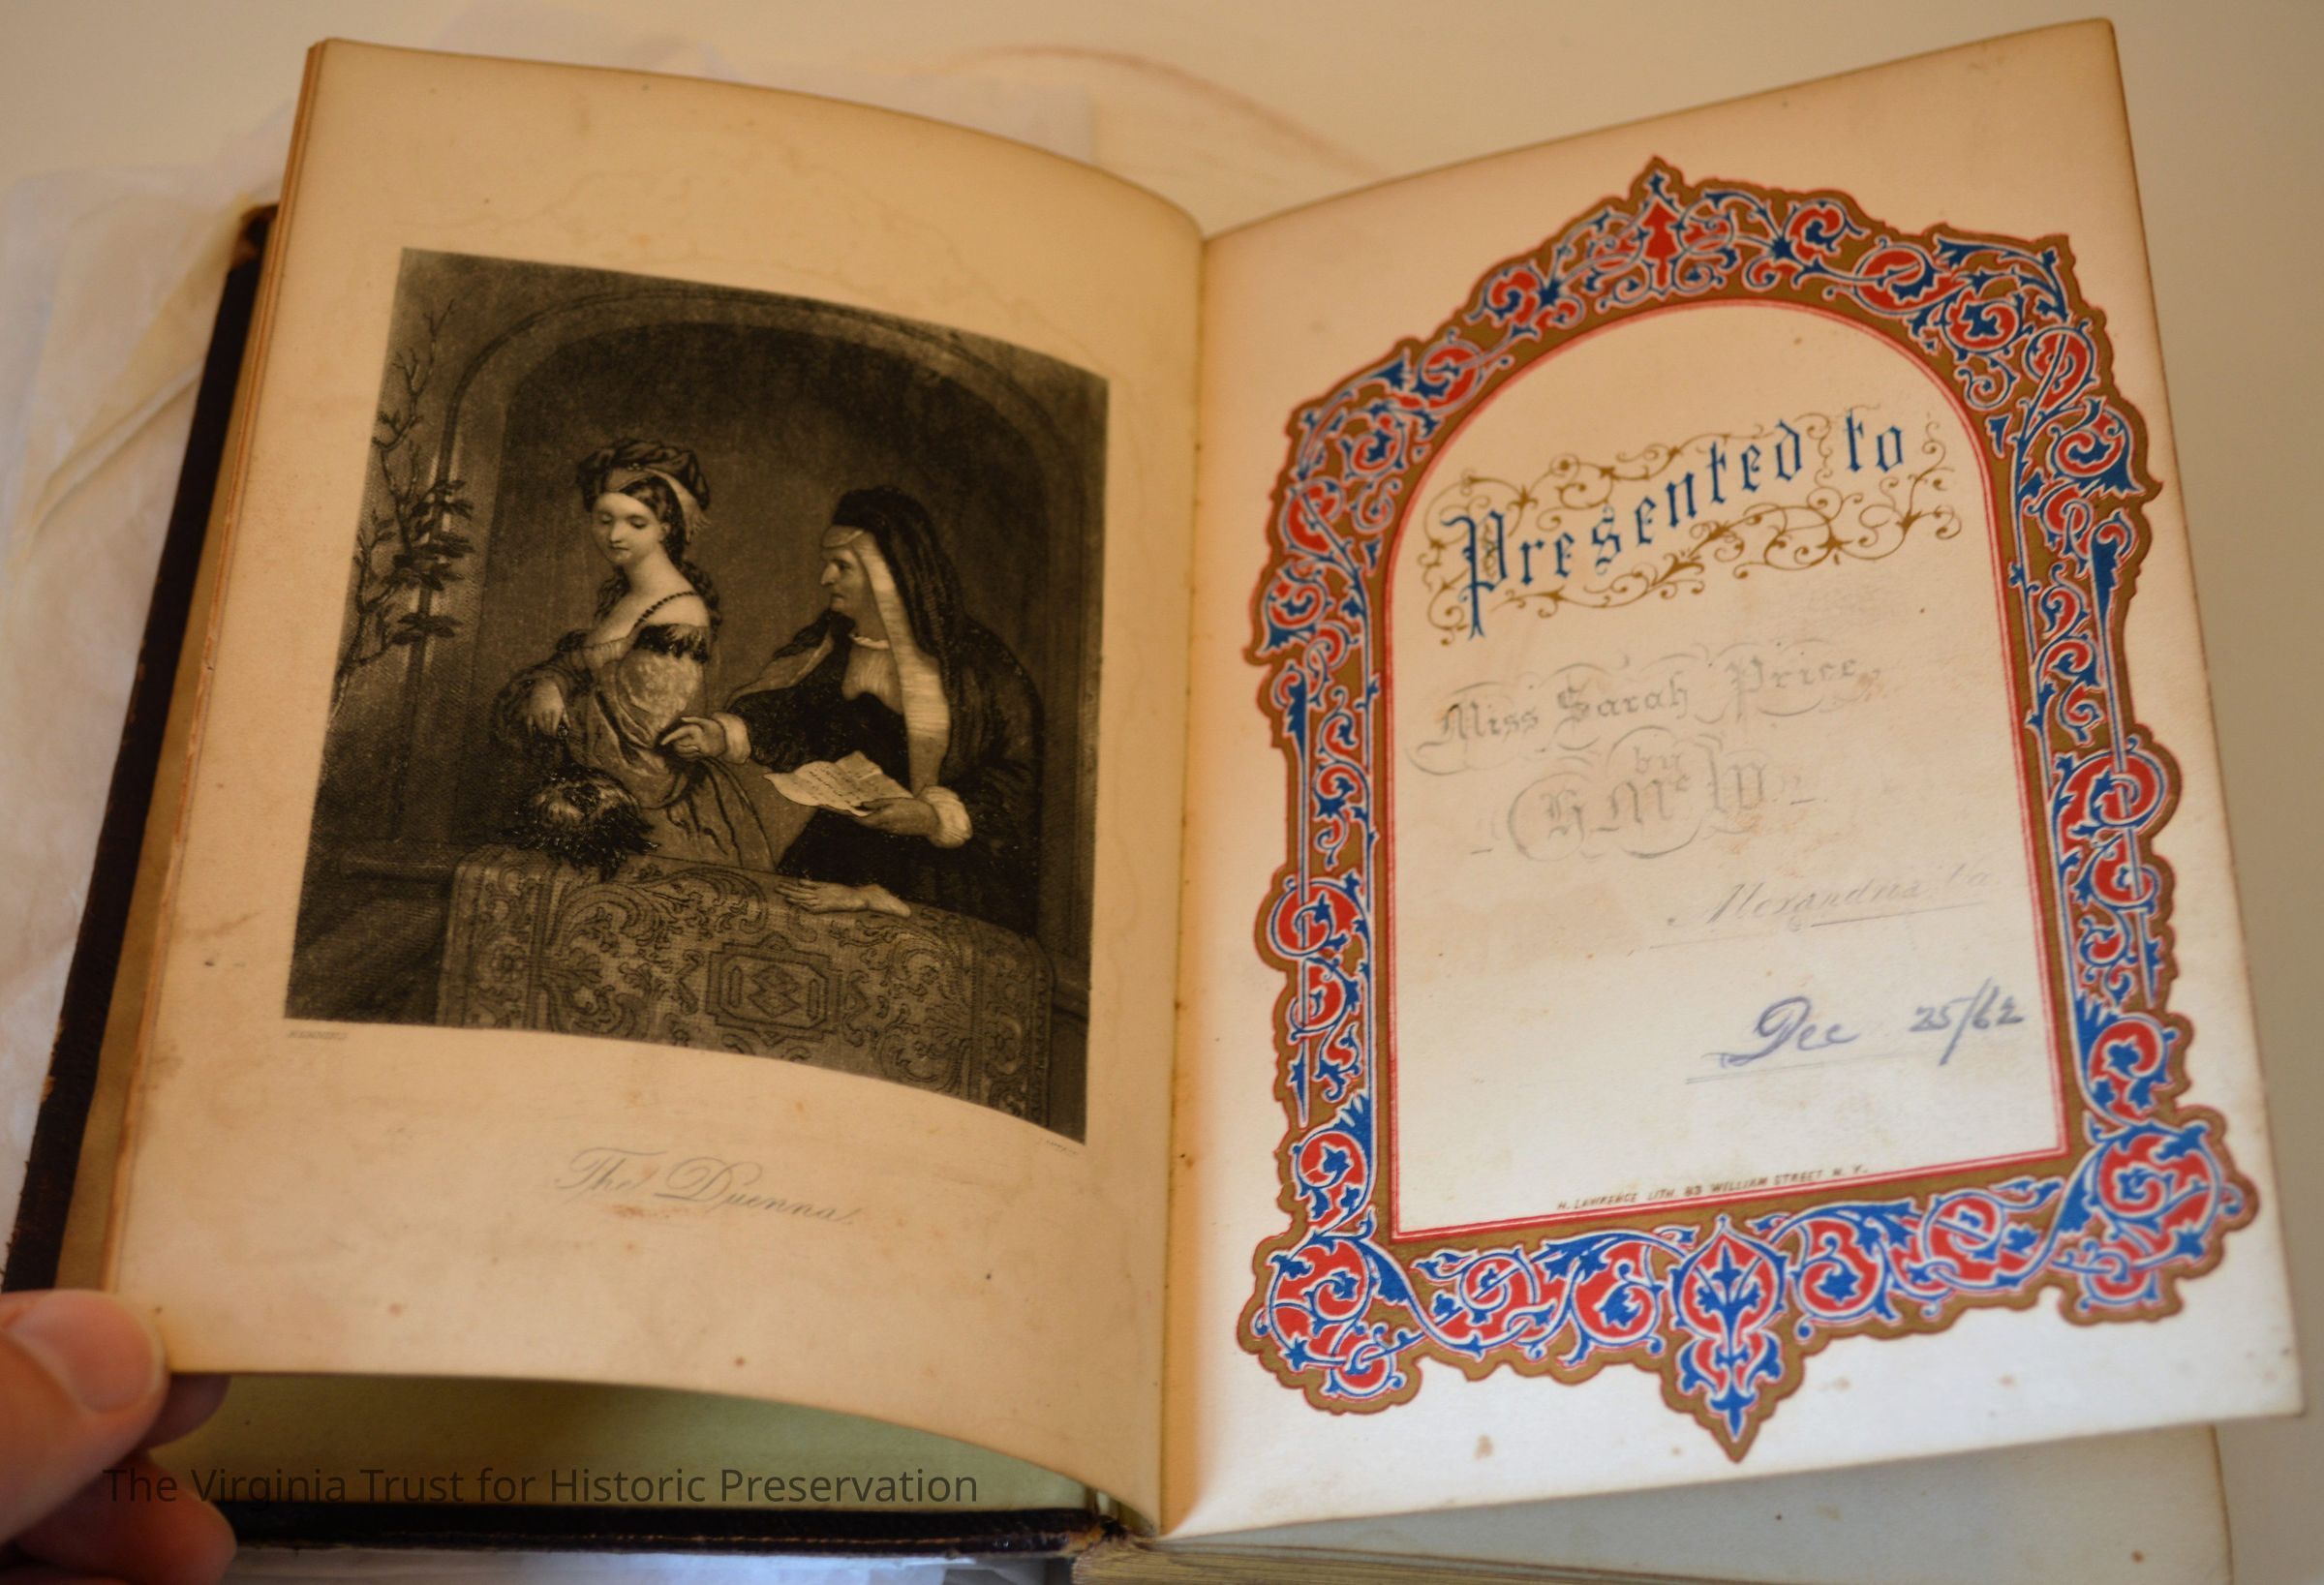 The Duenna.
Presented to
Miss Sarah Price,
by
H. Mc. W.
Alexandria Va
Dec 25/62
H. LAWRENCE LITH. 83 WILLIAM STREET N. Y.
The Virginia Trust for Historic Preservation